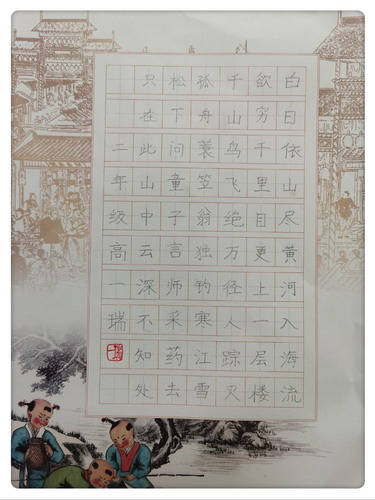 白日依山尽黄河入海流
欲穷千里目更上一层楼
千山鸟飞绝万径人踪灭
孤舟蓑笠翁独钓寒江雪
松下问童子言师采药去
只在此山中云深不知处
二年级高一瑞